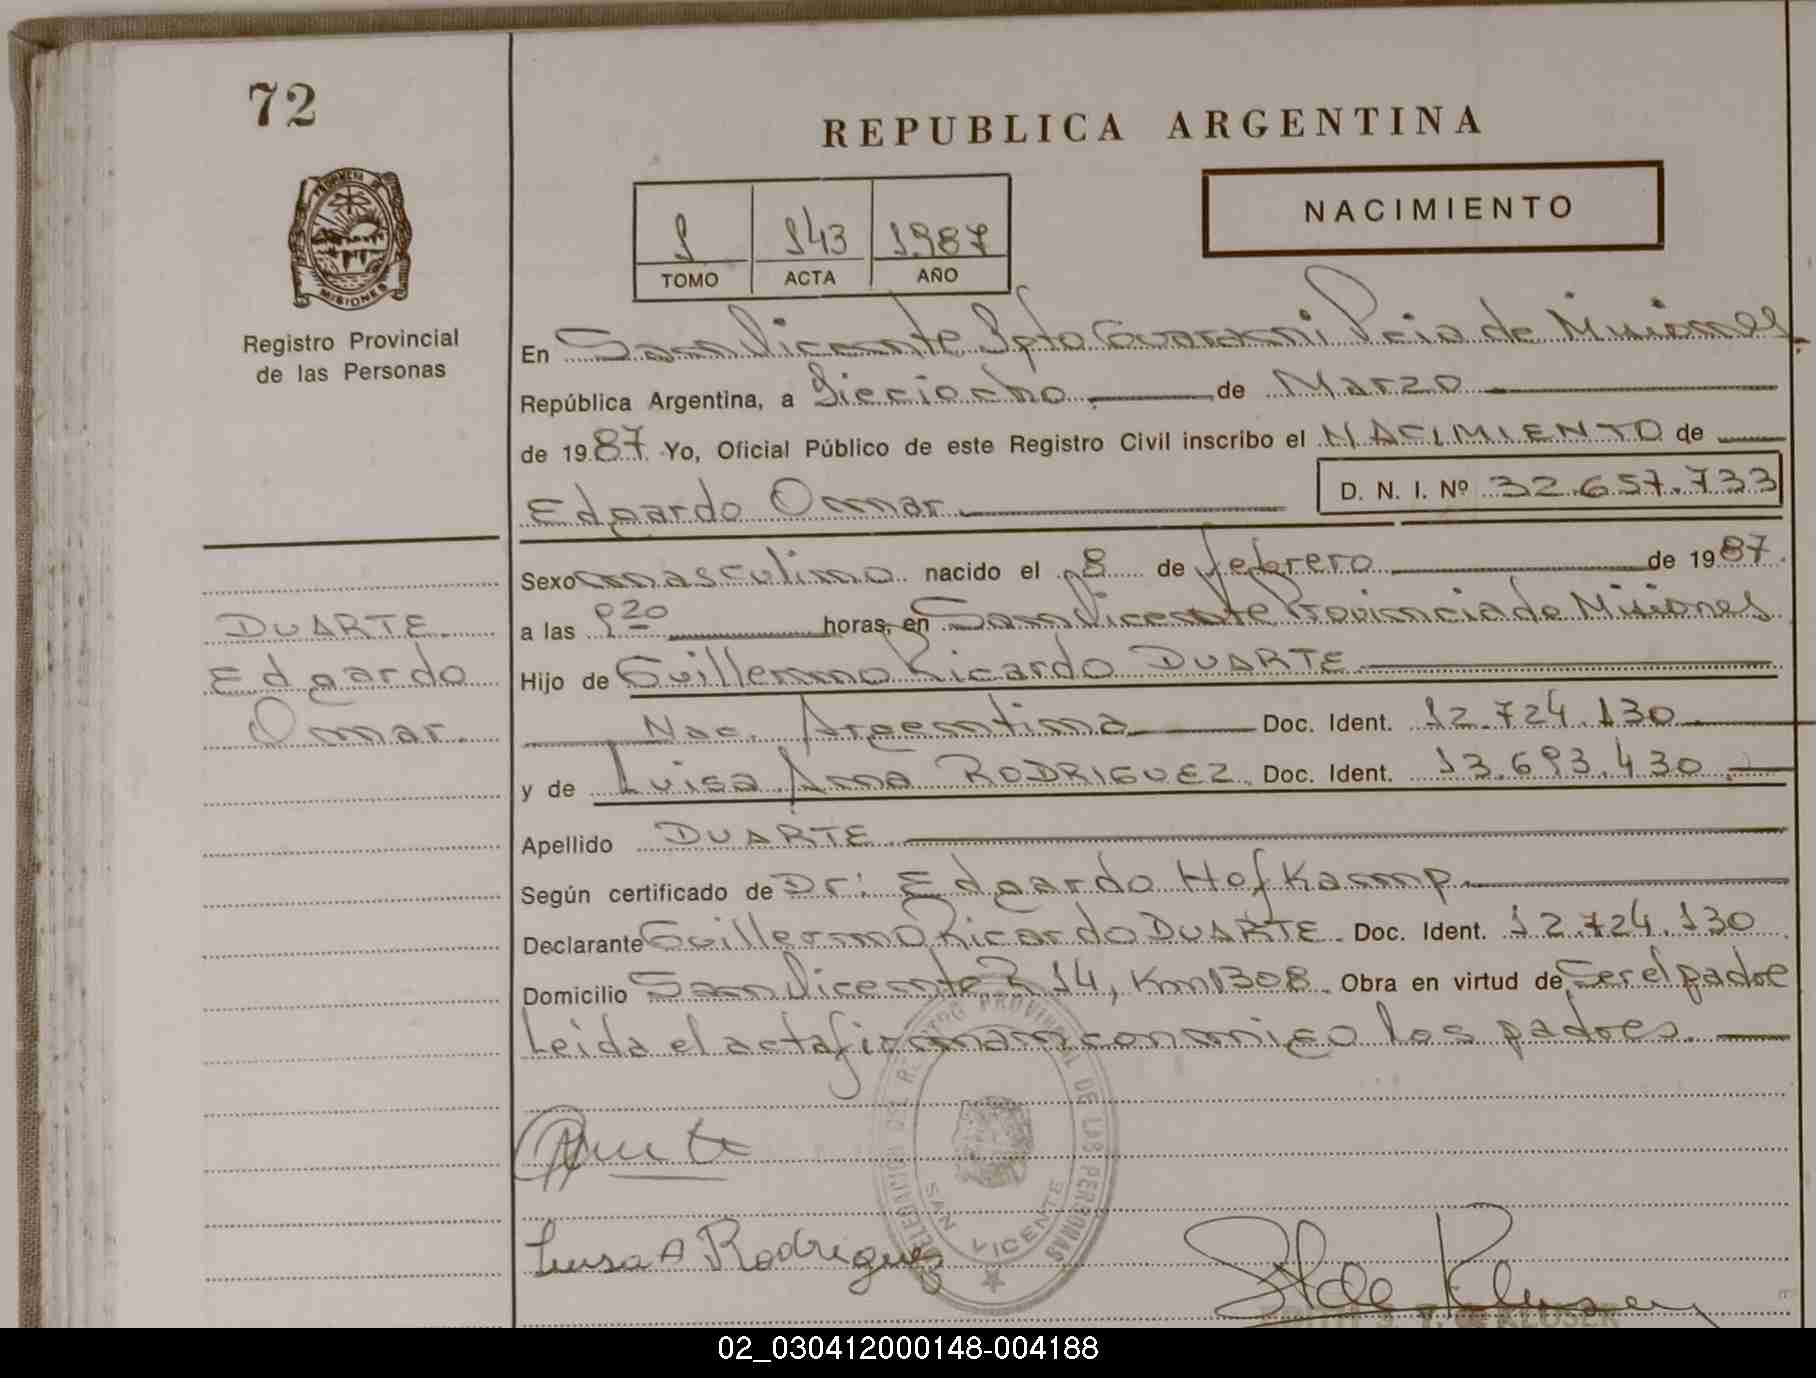 72
REPUBLICA ARGENTINA
PROVINCIA DE
MISIONES
Registro Provincial
de las Personas
1 143 1987
TOMO ACTA AÑO
NACIMIENTO
En San Vicente Dpto Guarani Pcia de Misiones.
República Argentina, a Dieciocho de Marzo
de 1987. Yo, Oficial Público de este Registro Civil inscribo el NACIMIENTO de
Edgardo Omar D. N. I. Nº 32.657.733
Sexo masculino nacido el 8 de febrero de 1987.
a las 9 20 horas, en San Vicente Provincia de Misiones
Hijo de Guillermo Ricardo DUARTE
Nac. Argentina Doc. Ident. 12.724.130
y de Luisa Ana RODRIGUEZ Doc. Ident. 13.693.430
Apellido DUARTE
Según certificado de Dr: Edgardo Hof Kamp
Declarante Guillermo Ricardo DUARTE Doc. Ident. 12.724.130
Domicilio San Vicente R 14, Km 1308. Obra en virtud de Ser el padre
Leida el acta firman conmigo los padres.
DUARTE
Edgardo
Omar.
DELEGACION DEL REGISTRO PROVINCIAL DE LAS PERSONAS
SAN VICENTE
Luisa A Rodriguez
02_030412000148-004188